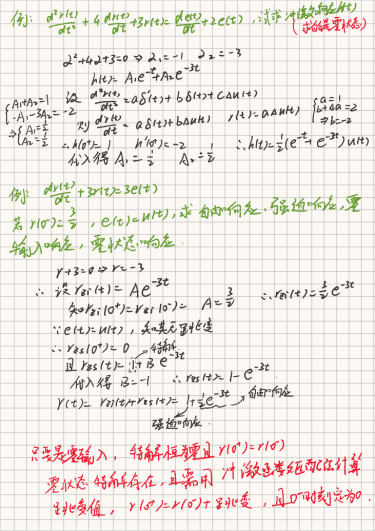 例: d²r(t)/dt² + 4 dr(t)/dt + 3r(t) = de(t)/dt + 2e(t), 试求冲激响应h(t)
(求的是零状态)
λ²+4λ+3=0 ⇒ λ₁=-1 λ₂=-3
h(t)= A₁e^{-t}+A₂e^{-3t}
设 d²r(t)/dt² = aδ'(t)+bδ(t)+cΔu(t)
{A₁+A₂=1 -A₁-3A₂=-2
则 dr(t)/dt = aδ(t)+bΔu(t) r(t)=aΔu(t) {a=1 b+4a=2 ⇒b=-2
⇒{A₁=1/2 A₂=1/2
∴h(0⁺)=1 h'(0⁺)=-2 ∴h(t)=1/2(e^{-t}+e^{-3t})u(t)
代入得 A₁=1/2 A₂=1/2
例: dr(t)/dt+3r(t)=3e(t)
若 r(0⁻)=3/2, e(t)=u(t), 求自由响应、强迫响应、零
输入响应, 零状态响应.
r+3=0⇒r=-3
∴ 设 rzi(t)= Ae^{-3t}
知rzi(0⁺)=rzi(0⁻)= A=3/2 ∴rzi(t)=3/2e^{-3t}
∵e(t)=u(t), 知其无跳变
∴ rzs(0⁺)=0 特解
且 rzs(t)=1+Be^{-3t}
代入得 B=-1 ∴rzs(t)=1-e^{-3t}
r(t)= rzi(t)+rzs(t)= 1+1/2e^{-3t} 自由响应
强迫响应
只要是零输入, 特解恒零且r(0⁺)=r(0⁻)
零状态特解存在, 且需用冲激函数匹配法计算
跳变值, r(0⁺)=r(0⁻)+跳变, 且0⁻时刻定为0.